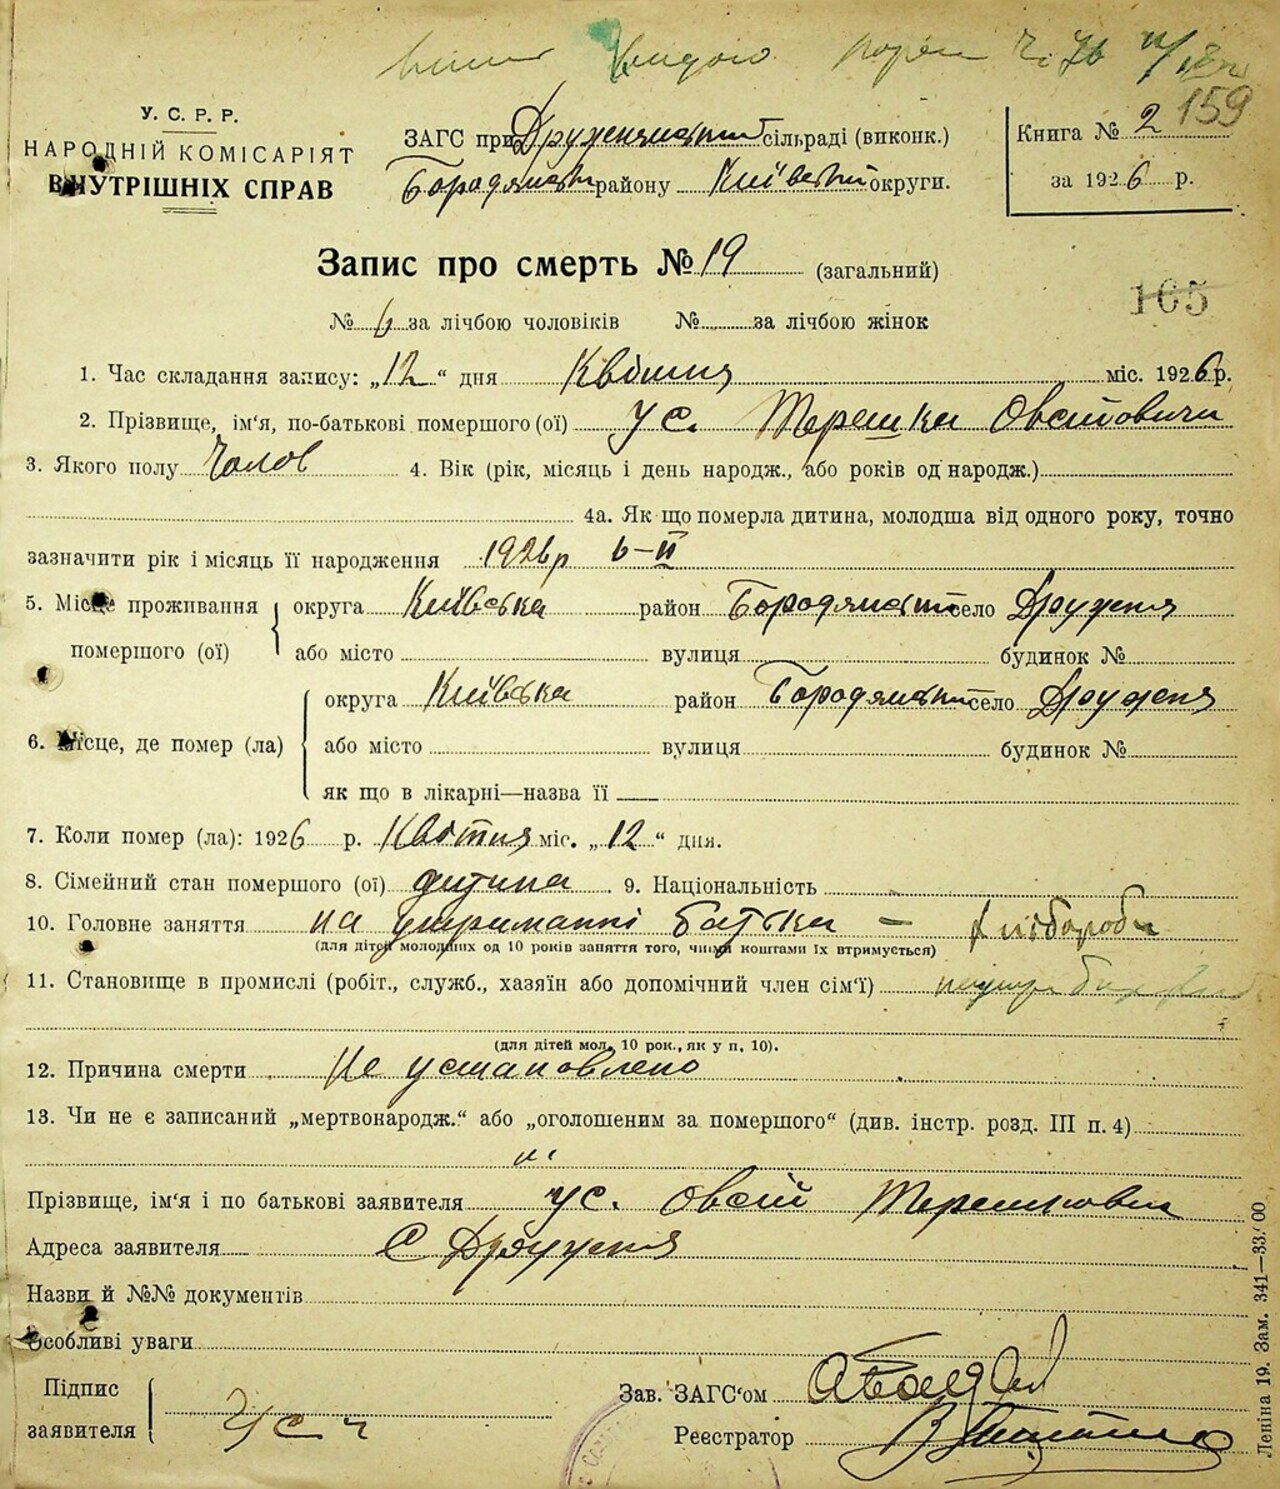 159
У. С. Р. Р.
НАРОДНІЙ КОМІСАРІЯТ
ВНУТРІШНІХ СПРАВ
ЗАГС при Дружнянській сільраді (виконк.)
Бородянськ району Київської округи.
Книга № 2
за 1926 р.
Запис про смерть № 19 (загальний)
105
№ 6 за лічбою чоловіків № за лічбою жінок
1. Час складання запису: „12“ дня Квітня міс. 1926 р.
2. Прізвище, ім'я, по-батькові помершого (ої) Ус. Терешка Овсійович
3. Якого полу Чолов 4. Вік (рік, місяць і день народж., або років од народж.)
4а. Як що померла дитина, молодша від одного року, точно
зазначити рік і місяць її народження 1926 р 6–II
5. Місце проживання помершого (ої) округа Київська район Бородянськ село Дружня
або місто вулиця будинок №
6. Місце, де помер (ла) округа Київська район Бородянськ село Дружня
або місто вулиця будинок №
як що в лікарні—назва її
7. Коли помер (ла): 1926 р. Квітня міс. „12“ дня.
8. Сімейний стан помершого (ої) дитина 9. Національність
10. Головне заняття на утриманні батька – хлібороба
(для дітей молодших од 10 років заняття того, чиїми коштами їх втримується)
11. Становище в промислі (робіт., служб., хазяїн або допомічний член сім'ї)
(для дітей мол. 10 рок., як у п. 10).
12. Причина смерти Не установлено
13. Чи не є записаний „мертвонародж.“ або „оголошеним за помершого“ (див. інстр. розд. III п. 4)
Прізвище, ім'я і по батькові заявителя Ус. Овсій Терешкович
Адреса заявителя С Дружня
Назви й №№ документів
Особливі уваги
Підпис заявителя Ус
Зав. ЗАГС'ом
Реєстратор
Леніна 19. Зам. 341—33.